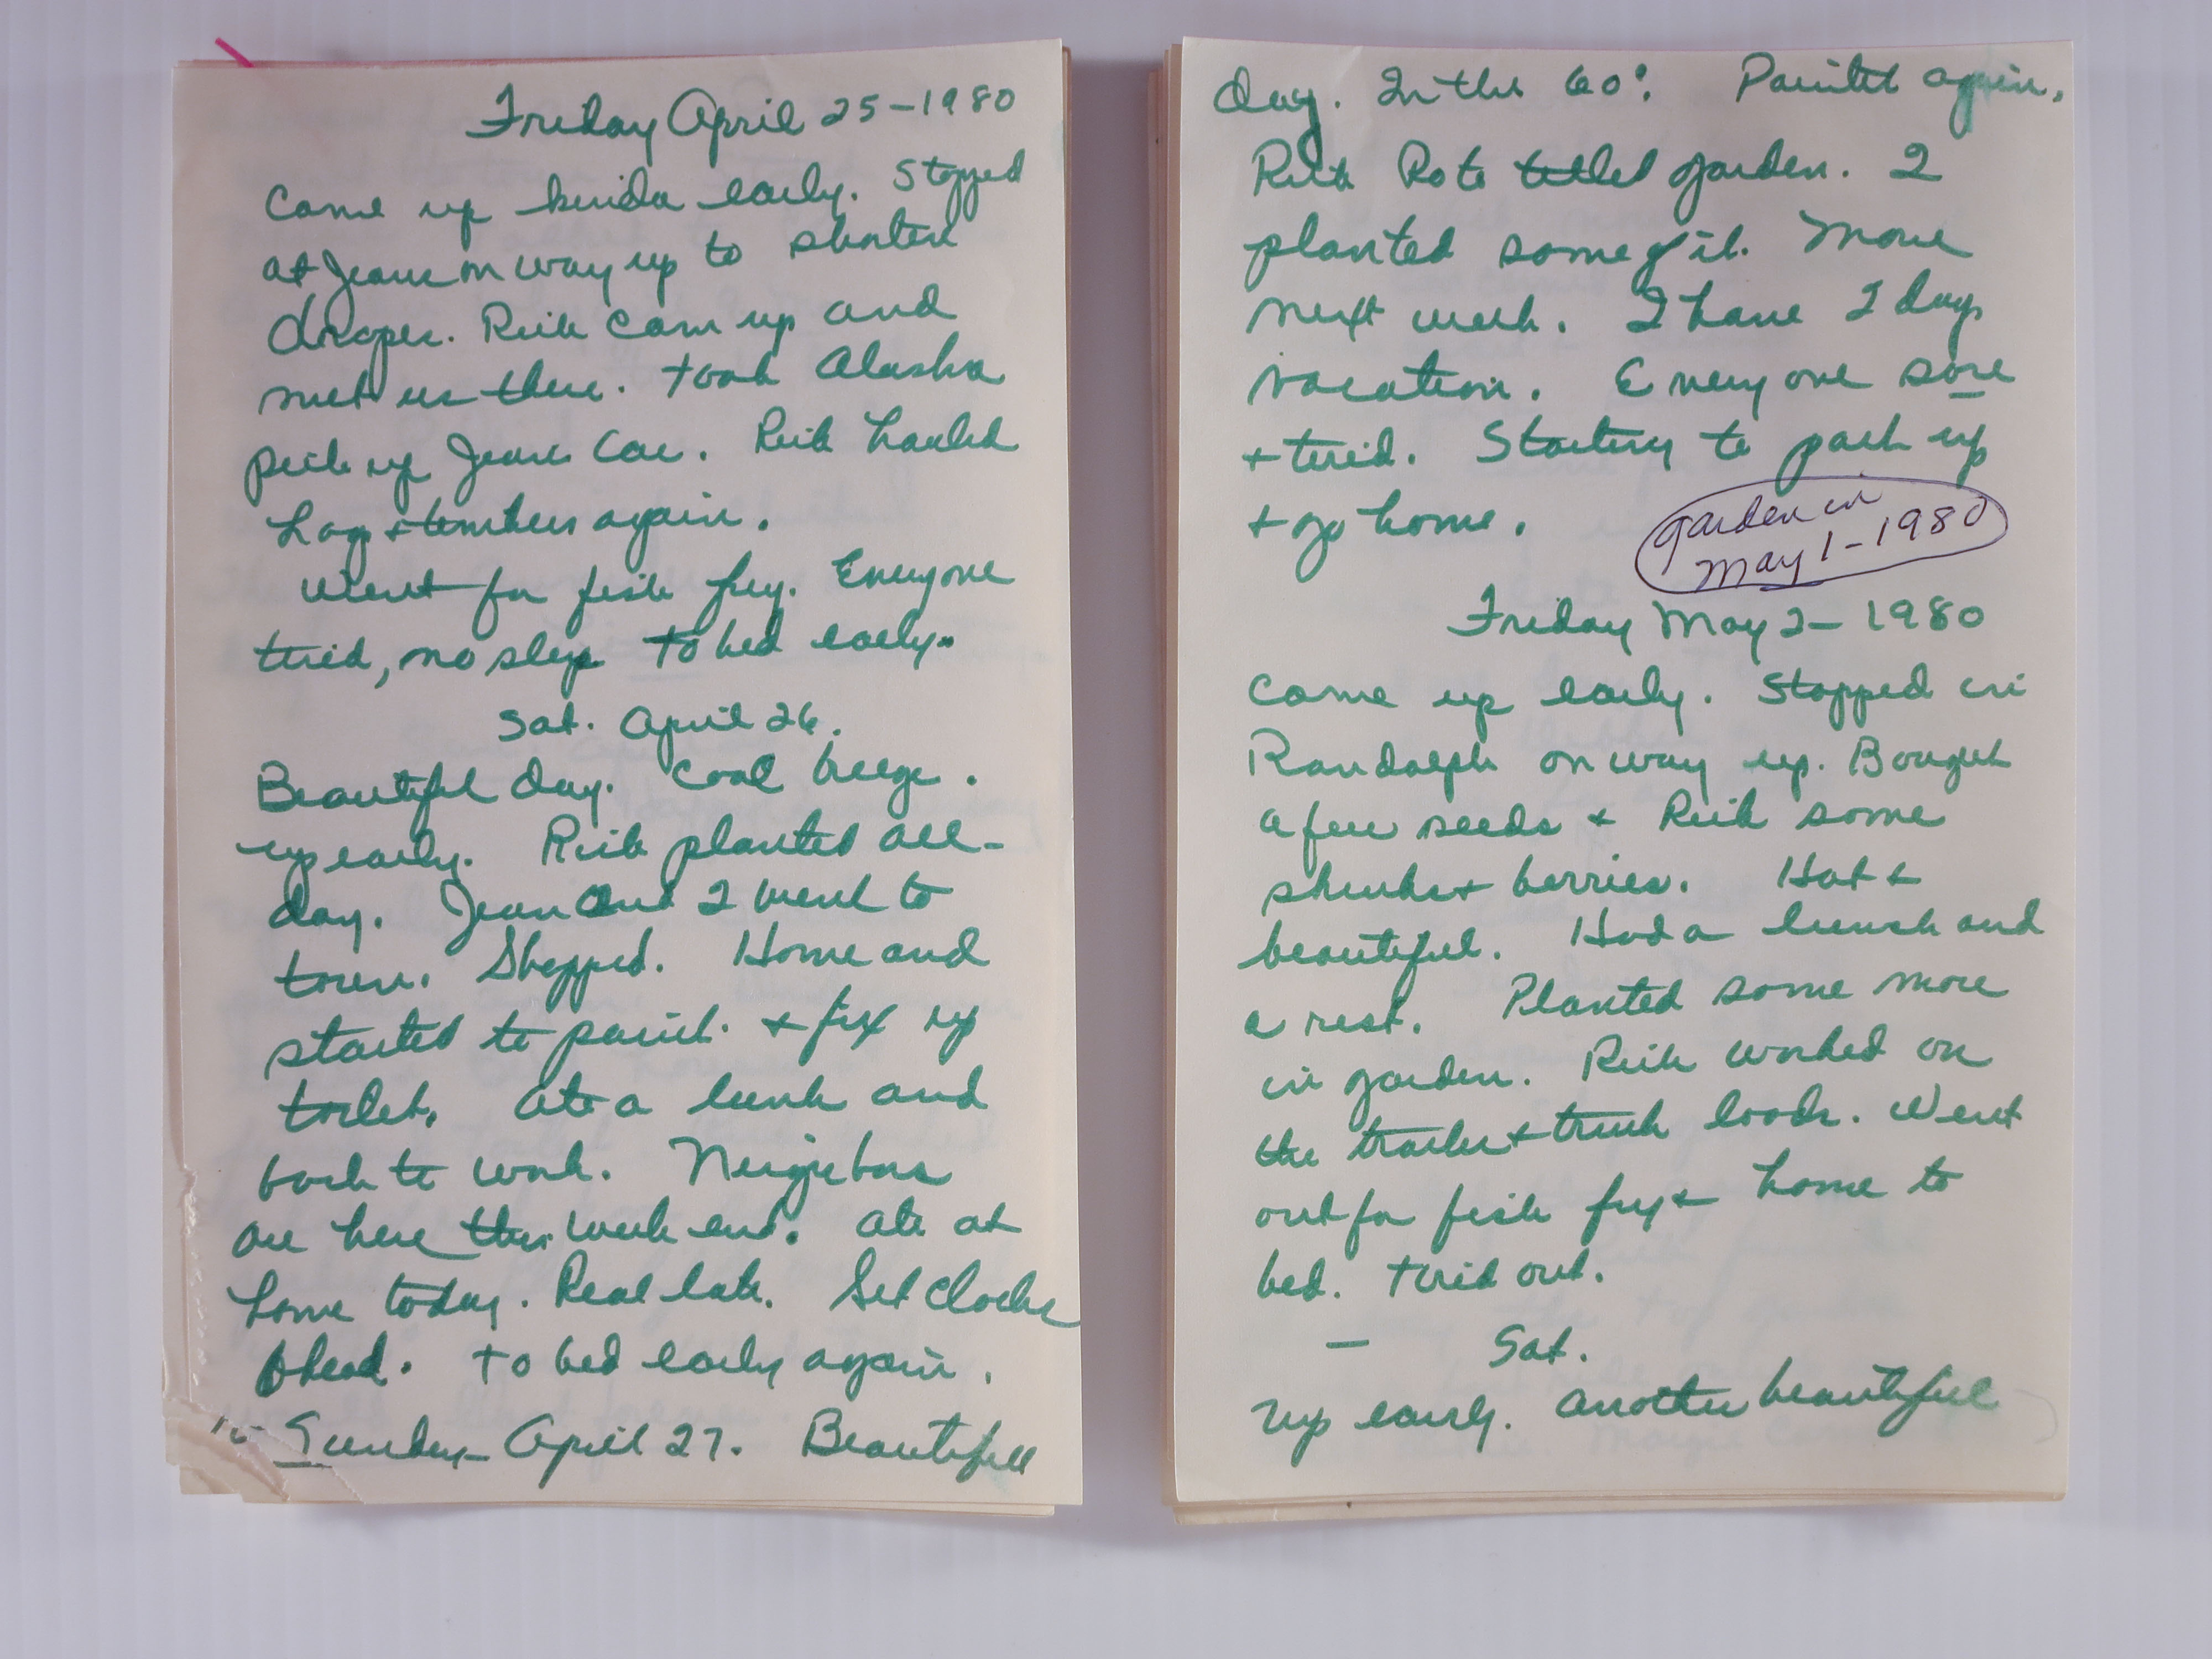 Friday April 25-1980
Came up kinda early. Stopped
at Jeans on way up to shorten
drapes. Rick came up and
met us there. Took Alaska
pick up Jeans Car. Rick hauled
Logs + timbers again.
Went for fish fry. Everyone
tired, no sleep To bed early.
Sat. April 26.
Beautiful day. Cool breeze.
up early. Rick planted all-
day. Jean and I went to
town. Shopped. Home and
started to paint. + fix up
toilet. Ate a lunch and
back to work. Neighbors
are here this week end. Ate at
home today. Real late. Set Clocks
Ahead. To bed early again.
Sunday - April 27. Beautiful
day. In the 60s. Painted again.
Rick Roto tilled garden. I
planted some of it. More
next week. I have 2 days
vacation. Everyone sore
+ tired. Starting to pack up
+ go home.
garden in
May 1-1980
Friday May 2-1980
Came up early. Stopped in
Randolph on way up. Bought
a few seeds + Rick some
shrubs + berries. Hot +
beautiful. Had a lunch and
a rest. Planted some more
in garden. Rick worked on
the trailer + truck loads. Went
out for fish fry + home to
bed. Tired out.
— Sat.
Up early. Another beautiful